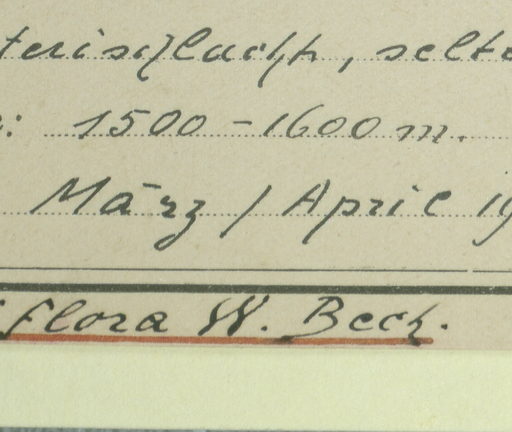 selte
: 1500 - 1600 m.
März / April 19
Flora W. Beck.